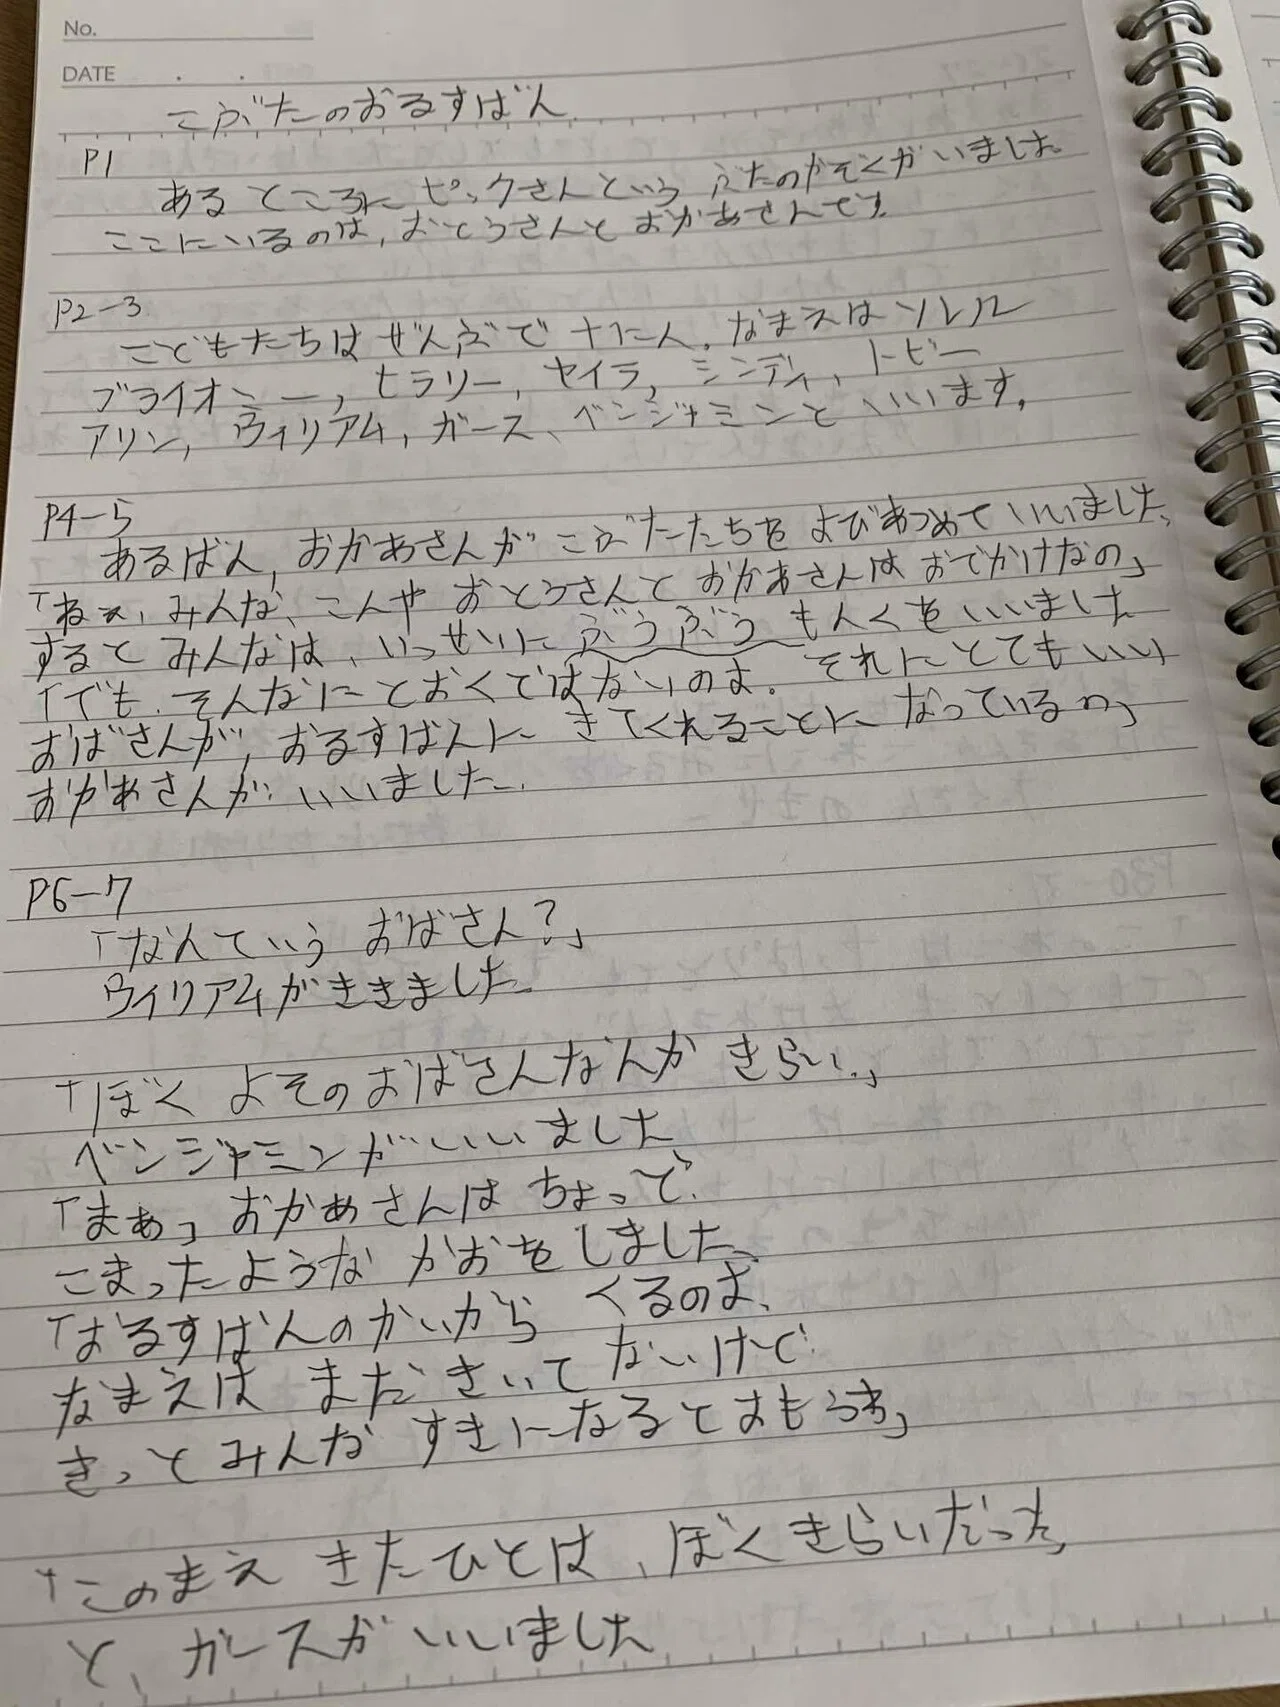 No.
DATE
こぶたのおるすばん
P1
ある ところに ピッグさんという ぶたのかぞくがいました。
ここにいるのは、おとうさんと おかあさんです。
P2-3
こどもたちは ぜんぶで 十にん。なまえは ソレル
ブライオニー、ヒラリー、セイラ、シンディ、トビー
アリン、ウィリアム、ガース、ベンジャミンと いいます。
P4-5
あるばん、おかあさんが こぶたたちを よびあつめていいました。
「ねぇ、みんな、こんや おとうさんと おかあさんは おでかけなの」
すると みんなは、いっせいに ぶうぶう もんくを いいました
「でも、そんなに とおくではないのよ。それに とても いい
おばさんが、おるすばんに きてくれることに なっているの」
おかあさんが いいました。
P6-7
「なんていう おばさん？」
ウィリアムがききました。
「ぼく よそのおばさんなんか きらい。」
ベンジャミンがいいました
「まあ」おかあさんは ちょっと
こまったような かおを しました。
「おるすばんのかいから くるのよ、
なまえは まだ きいて ないけど
きっと みんな すきになるとおもうわ」
「このまえ きたひとは、ぼく きらいだった」
と、ガースが いいました